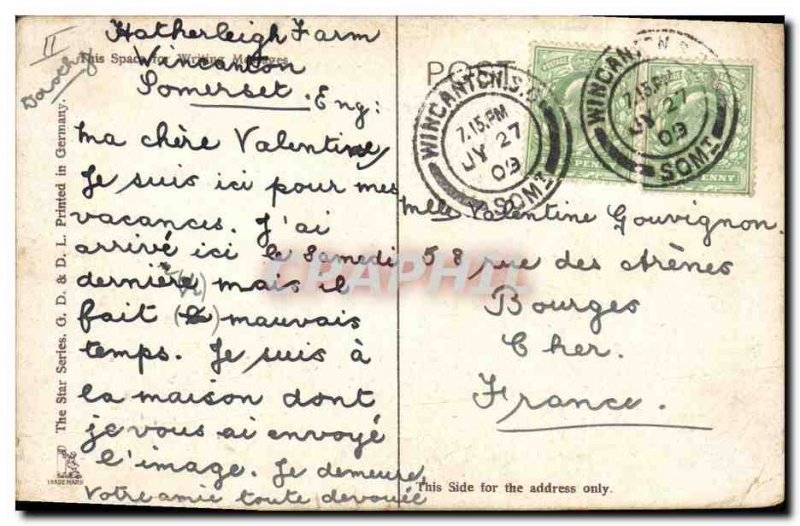 II
Dorothy
Hatherleigh Farm
This Space for Writing Messages
Wincanton
Somerset. Eng:
ma chère Valentine
Je suis ici pour mes
vacances. J'ai
arrivé ici le Samedi
dernière mais il
fait mauvais
temps. Je suis à
la maison dont
je vous ai envoyé
l'image. Je demeure
Votre amie toute devouée
The Star Series. G. D. & D. L. Printed in Germany.
TRADE MARK
POST
WINCANTON.S.O.
7.15.PM
JY 27
09
SOMT
WINCANTON.S.O.
7.15.PM
JY 27
09
SOMT
PENNY
Mlle Valentine Gouvignon.
58 rue des Arènes
Bourges
Cher.
France.
This Side for the address only.
CPAPHIL